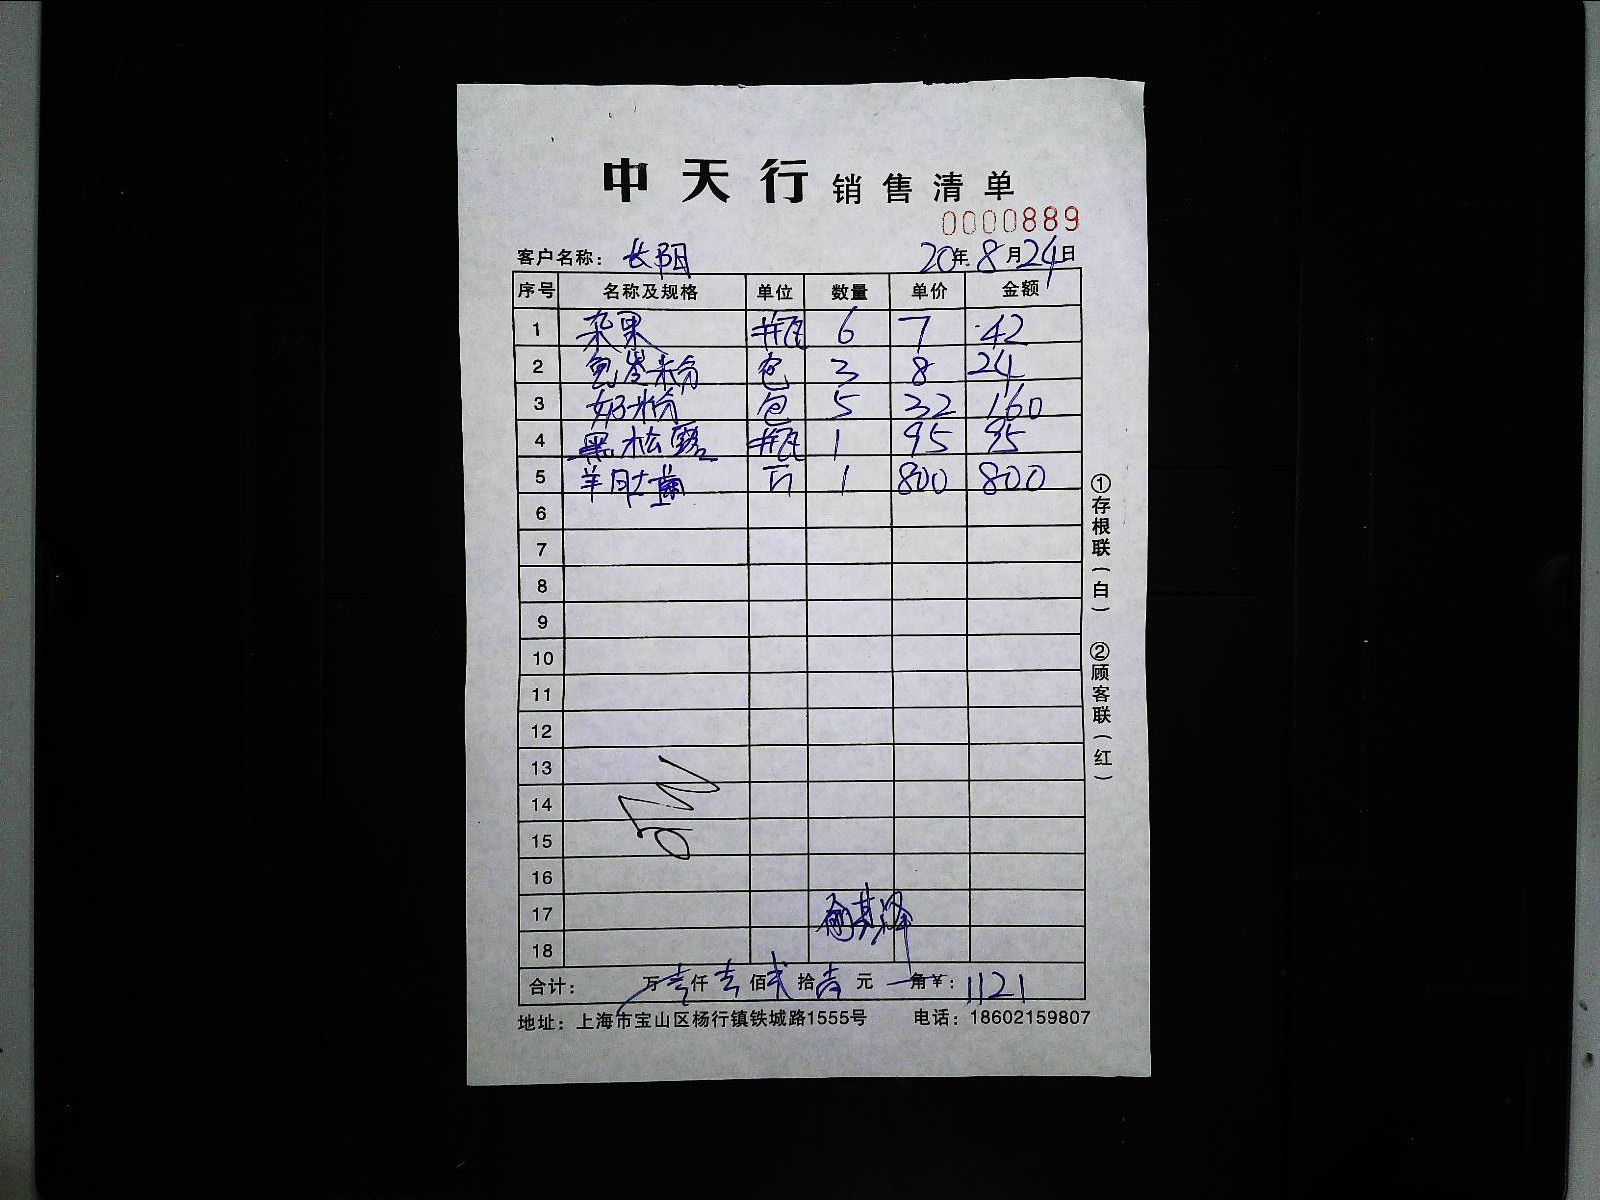 中天行销售清单
0000889
客户名称：长阳 20年8月24日
序号 名称及规格 单位 数量 单价 金额
1 杂果 瓶 6 7 42
2 包 3 8 24
3 奶粉 包 5 32 160
4 黑松露 瓶 1 95 95
5 羊肚菌 斤 1 800 800
6
7
8
9
10
11
12
13
14
15
16
17
18
合计： 万壹仟壹佰贰拾壹元 角￥：1121
地址：上海市宝山区杨行镇铁城路1555号 电话：18602159807
①存根联（白）
②顾客联（红）